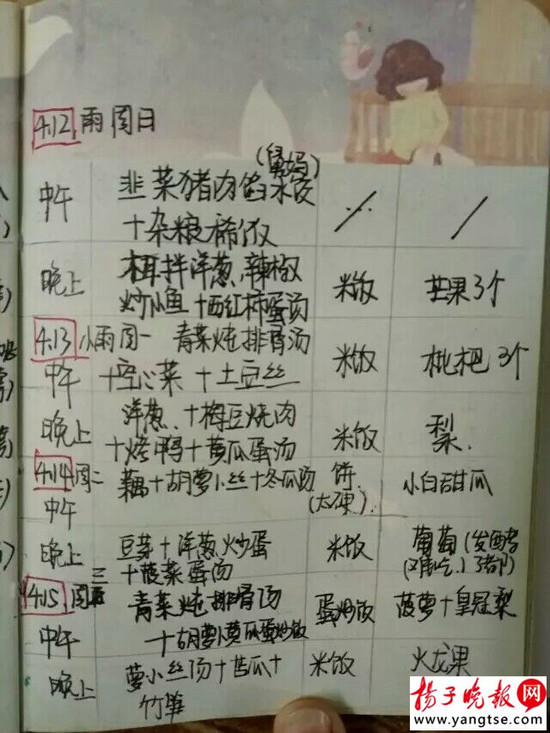 4.12. 雨 周日
(舅妈)
中午 韭菜猪肉馅水饺
十杂粮稀饭
晚上 木耳拌洋葱、辣椒
炒小鱼 十西红柿蛋汤 米饭 芒果3个
4.13 小雨 周一 青菜炖排骨汤
中午 十空心菜十土豆丝 米饭 枇杷3个
洋葱、十梅豆烧肉
晚上 十烤鸭十黄瓜蛋汤 米饭 梨.
4.14 周二 藕十胡萝卜丝十冬瓜汤 饼. 小白甜瓜
中午 (太硬)
晚上 豆芽十洋葱炒蛋 米饭 葡萄
十菠菜蛋汤 (难吃、)
4.15. 周三 青菜炖排骨汤 蛋炒饭 菠萝十皇冠梨
中午 十胡萝卜黄瓜蛋炒饭
晚上 萝卜丝汤十苦瓜十 米饭 火龙果
竹笋
扬子晚报网
www.yangtse.com